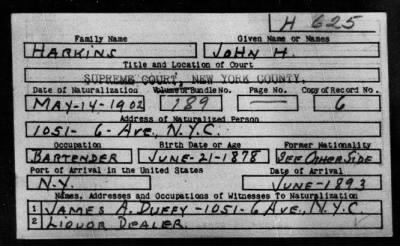 H 625
Family Name Given Name or Names
HARKINS JOHN H.
Title and Location of Court
SUPREME COURT, NEW YORK COUNTY.
Date of Naturalization Volume or Bundle No. Page No. Copy of Record No.
MAY-14-1902 189 — 6
Address of Naturalized Person
1051- 6- AVE., N.Y.C.
Occupation Birth Date or Age Former Nationality
BARTENDER JUNE-21-1878 SEE OTHER SIDE
Port of Arrival in the United States Date of Arrival
N.Y. JUNE-1893
Names, Addresses and Occupations of Witnesses To Naturalization
1 JAMES A. DUFFY-1051-6 AVE., N.Y.C
2 LIQUOR DEALER.